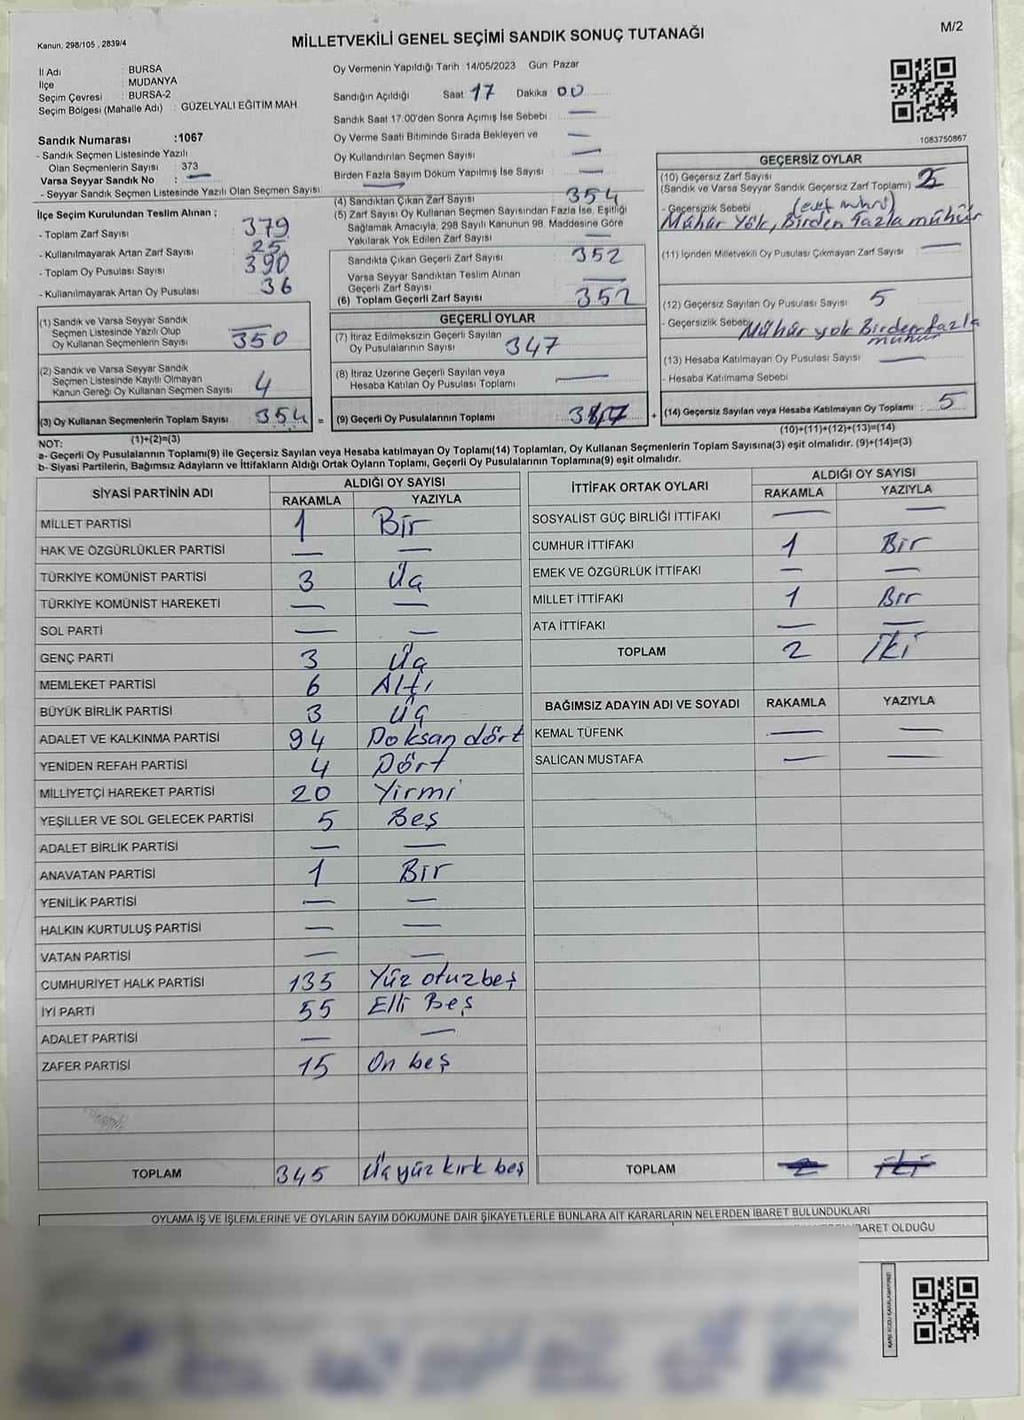 Kanun. 298/105 , 2839/4
MİLLETVEKİLİ GENEL SEÇİMİ SANDIK SONUÇ TUTANAĞI
M/2
İl Adı : BURSA
İlçe MUDANYA
Seçim Çevresi : BURSA-2
Seçim Bölgesi (Mahalle Adı) : GÜZELYALI EĞİTİM MAH.
Sandık Numarası :1067
- Sandık Seçmen Listesinde Yazılı
Olan Seçmenlerin Sayısı : 373
Varsa Seyyar Sandık No : —
- Seyyar Sandık Seçmen Listesinde Yazılı Olan Seçmen Sayısı
Oy Vermenin Yapıldığı Tarih 14/05/2023 Gün Pazar
Sandığın Açıldığı Saat 17 Dakika 00
Sandık Saat 17:00'den Sonra Açımış İse Sebebi —
Oy Verme Saati Bitiminde Sırada Bekleyen ve —
Oy Kullandırılan Seçmen Sayısı —
Birden Fazla Sayım Döküm Yapılmış İse Sayısı —
1083750867
İlçe Seçim Kurulundan Teslim Alınan ;
- Toplam Zarf Sayısı 379
- Kullanılmayarak Artan Zarf Sayısı 25
- Toplam Oy Pusulası Sayısı 390
- Kullanılmayarak Artan Oy Pusulası 36
(1) Sandık ve Varsa Seyyar Sandık
Seçmen Listesinde Yazılı Olup
Oy Kullanan Seçmenlerin Sayısı 350
(2) Sandık ve Varsa Seyyar Sandık
Seçmen Listesinde Kayıtlı Olmayan
Kanun Gereği Oy Kullanan Seçmen Sayısı 4
(3) Oy Kullanan Seçmenlerin Toplam Sayısı 354 =
(1)+(2)=(3)
(4) Sandıktan Çıkan Zarf Sayısı 354
(5) Zarf Sayısı Oy Kullanan Seçmen Sayısından Fazla İse, Eşitliği
Sağlamak Amacıyla, 298 Sayılı Kanunun 98. Maddesine Göre
Yakılarak Yok Edilen Zarf Sayısı —
Sandıkta Çıkan Geçerli Zarf Sayısı 352
Varsa Seyyar Sandıktan Teslim Alınan
Geçerli Zarf Sayısı —
(6) Toplam Geçerli Zarf Sayısı 352
GEÇERLİ OYLAR
(7) İtiraz Edilmeksizin Geçerli Sayılan
Oy Pusulalarının Sayısı 347
(8) İtiraz Üzerine Geçerli Sayılan veya
Hesaba Katılan Oy Pusulası Toplamı —
(9) Geçerli Oy Pusulalarının Toplamı 347 +
GEÇERSİZ OYLAR
(10) Geçersiz Zarf Sayısı
(Sandık ve Varsa Seyyar Sandık Geçersiz Zarf Toplamı)
- Geçersizlik Sebebi
Mühür Yok, Birden Fazla mühür
(11) İçinden Milletvekili Oy Pusulası Çıkmayan Zarf Sayısı —
(12) Geçersiz Sayılan Oy Pusulası Sayısı 5
- Geçersizlik Sebebi Mühür yok Birden fazla
mühür
(13) Hesaba Katılmayan Oy Pusulası Sayısı —
- Hesaba Katılmama Sebebi
(14) Geçersiz Sayılan veya Hesaba Katılmayan Oy Toplamı : 5
(10)+(11)+(12)+(13)=(14)
NOT:
a- Geçerli Oy Pusulalarının Toplamı(9) ile Geçersiz Sayılan veya Hesaba katılmayan Oy Toplamı(14) Toplamları, Oy Kullanan Seçmenlerin Toplam Sayısına(3) eşit olmalıdır. (9)+(14)=(3)
b- Siyasi Partilerin, Bağımsız Adayların ve İttifakların Aldığı Ortak Oyların Toplamı, Geçerli Oy Pusulalarının Toplamına(9) eşit olmalıdır.
SİYASİ PARTİNİN ADI ALDIĞI OY SAYISI
RAKAMLA YAZIYLA
MİLLET PARTİSİ 1 Bir
HAK VE ÖZGÜRLÜKLER PARTİSİ — —
TÜRKİYE KOMÜNİST PARTİSİ 3 Üç
TÜRKİYE KOMÜNİST HAREKETİ — —
SOL PARTİ — —
GENÇ PARTİ 3 Üç
MEMLEKET PARTİSİ 6 Altı
BÜYÜK BİRLİK PARTİSİ 3 Üç
ADALET VE KALKINMA PARTİSİ 94 Doksan dört
YENİDEN REFAH PARTİSİ 4 Dört
MİLLİYETÇİ HAREKET PARTİSİ 20 Yirmi
YEŞİLLER VE SOL GELECEK PARTİSİ 5 Beş
ADALET BİRLİK PARTİSİ — —
ANAVATAN PARTİSİ 1 Bir
YENİLİK PARTİSİ — —
HALKIN KURTULUŞ PARTİSİ — —
VATAN PARTİSİ — —
CUMHURİYET HALK PARTİSİ 135 Yüz otuzbeş
İYİ PARTİ 55 Elli Beş
ADALET PARTİSİ — —
ZAFER PARTİSİ 15 On beş
TOPLAM 345 Üçyüz kırk beş
İTTİFAK ORTAK OYLARI ALDIĞI OY SAYISI
RAKAMLA YAZIYLA
SOSYALİST GÜÇ BİRLİĞİ İTTİFAKI — —
CUMHUR İTTİFAKI 1 Bir
EMEK VE ÖZGÜRLÜK İTTİFAKI — —
MİLLET İTTİFAKI 1 Bir
ATA İTTİFAKI — —
TOPLAM 2 İki
BAĞIMSIZ ADAYIN ADI VE SOYADI RAKAMLA YAZIYLA
KEMAL TÜFENK — —
SALİCAN MUSTAFA — —
TOPLAM 2 iki
OYLAMA İŞ VE İŞLEMLERİNE VE OYLARIN SAYIM DÖKÜMÜNE DAİR ŞİKAYETLERLE BUNLARA AİT KARARLARIN NELERDEN İBARET BULUNDUKLARI
İBARET OLDUĞU